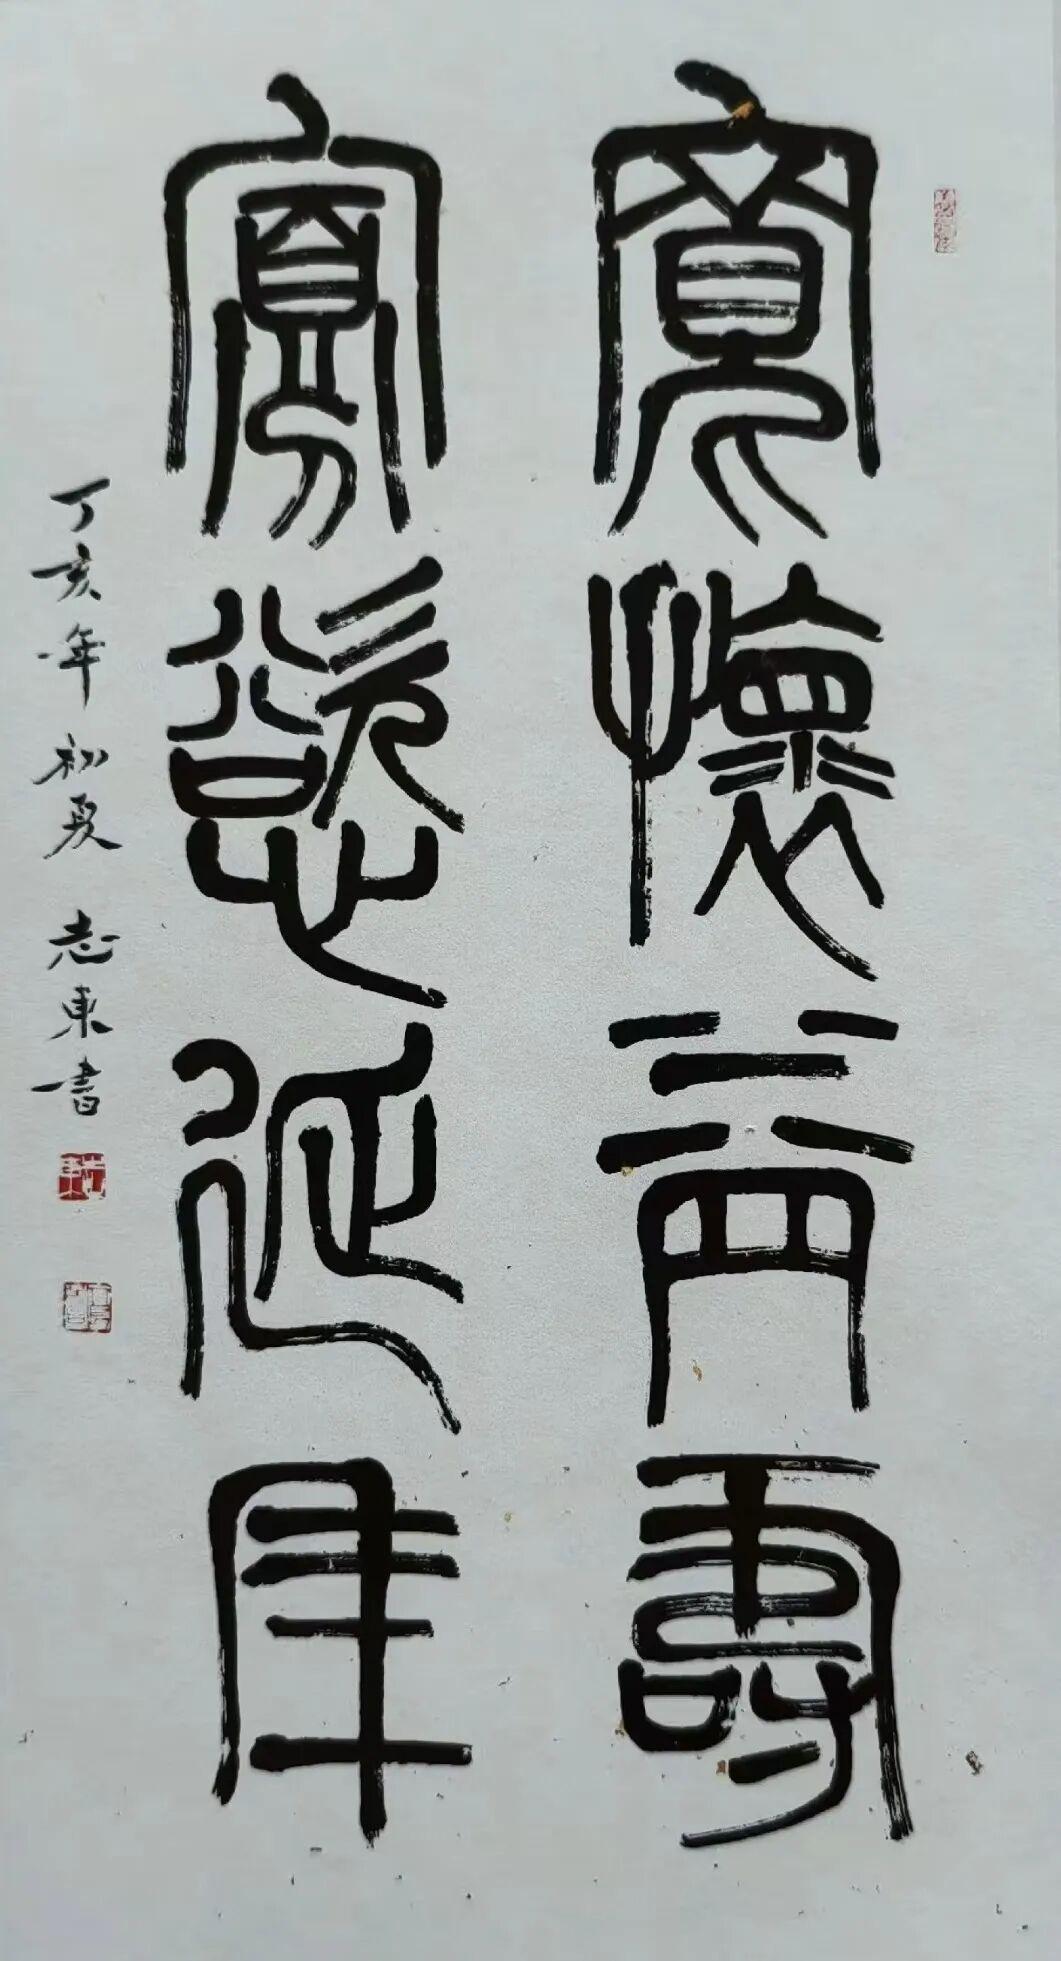 寬懷益壽
寡慾延年
丁亥年初夏志東書